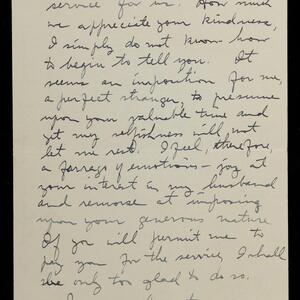 service for us. How much
we appreciate your kindness,
I simply do not know how
to begin to tell you. It
seems an imposition for me,
a perfect stranger, to presume
upon your valuable time and
yet my selfishness will not
let me rest. I feel, therefore,
a farrago of emotions - joy at
your interest in my husband
and remorse at imposing
upon your generous nature.
If you will permit me to
pay you for the service, I shall
be only too glad to do so.